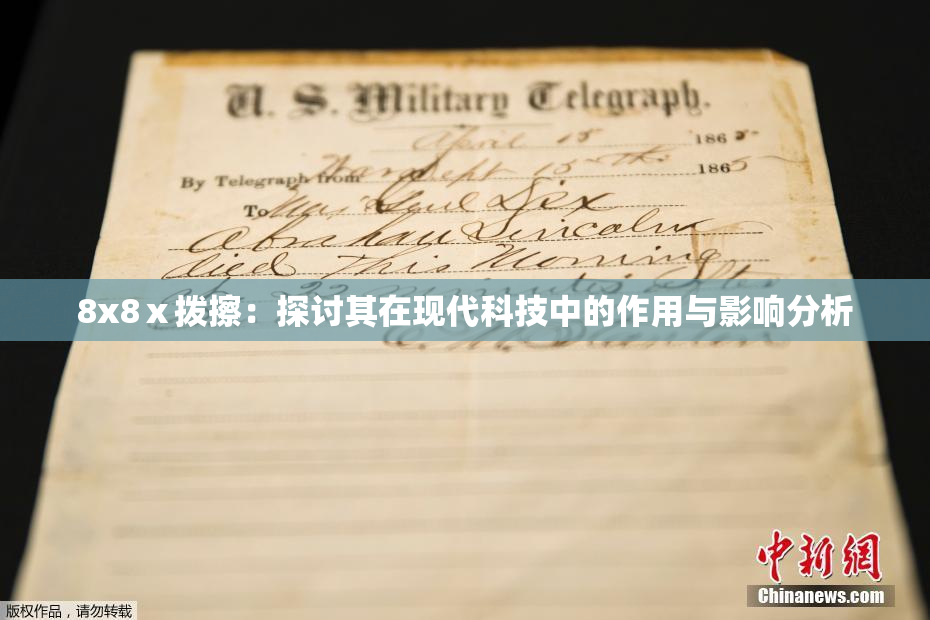 U. S. Military Telegraph.
April 15 1865
By Telegraph from War Dept 15th 1865
To Maj Genl Dix
Abraham Lincoln
died This Morning
22 minutes after
8x8ⅹ拨擦：探讨其在现代科技中的作用与影响分析
E. M. Stanton
中新網
Chinanews.com
版权作品，请勿转载